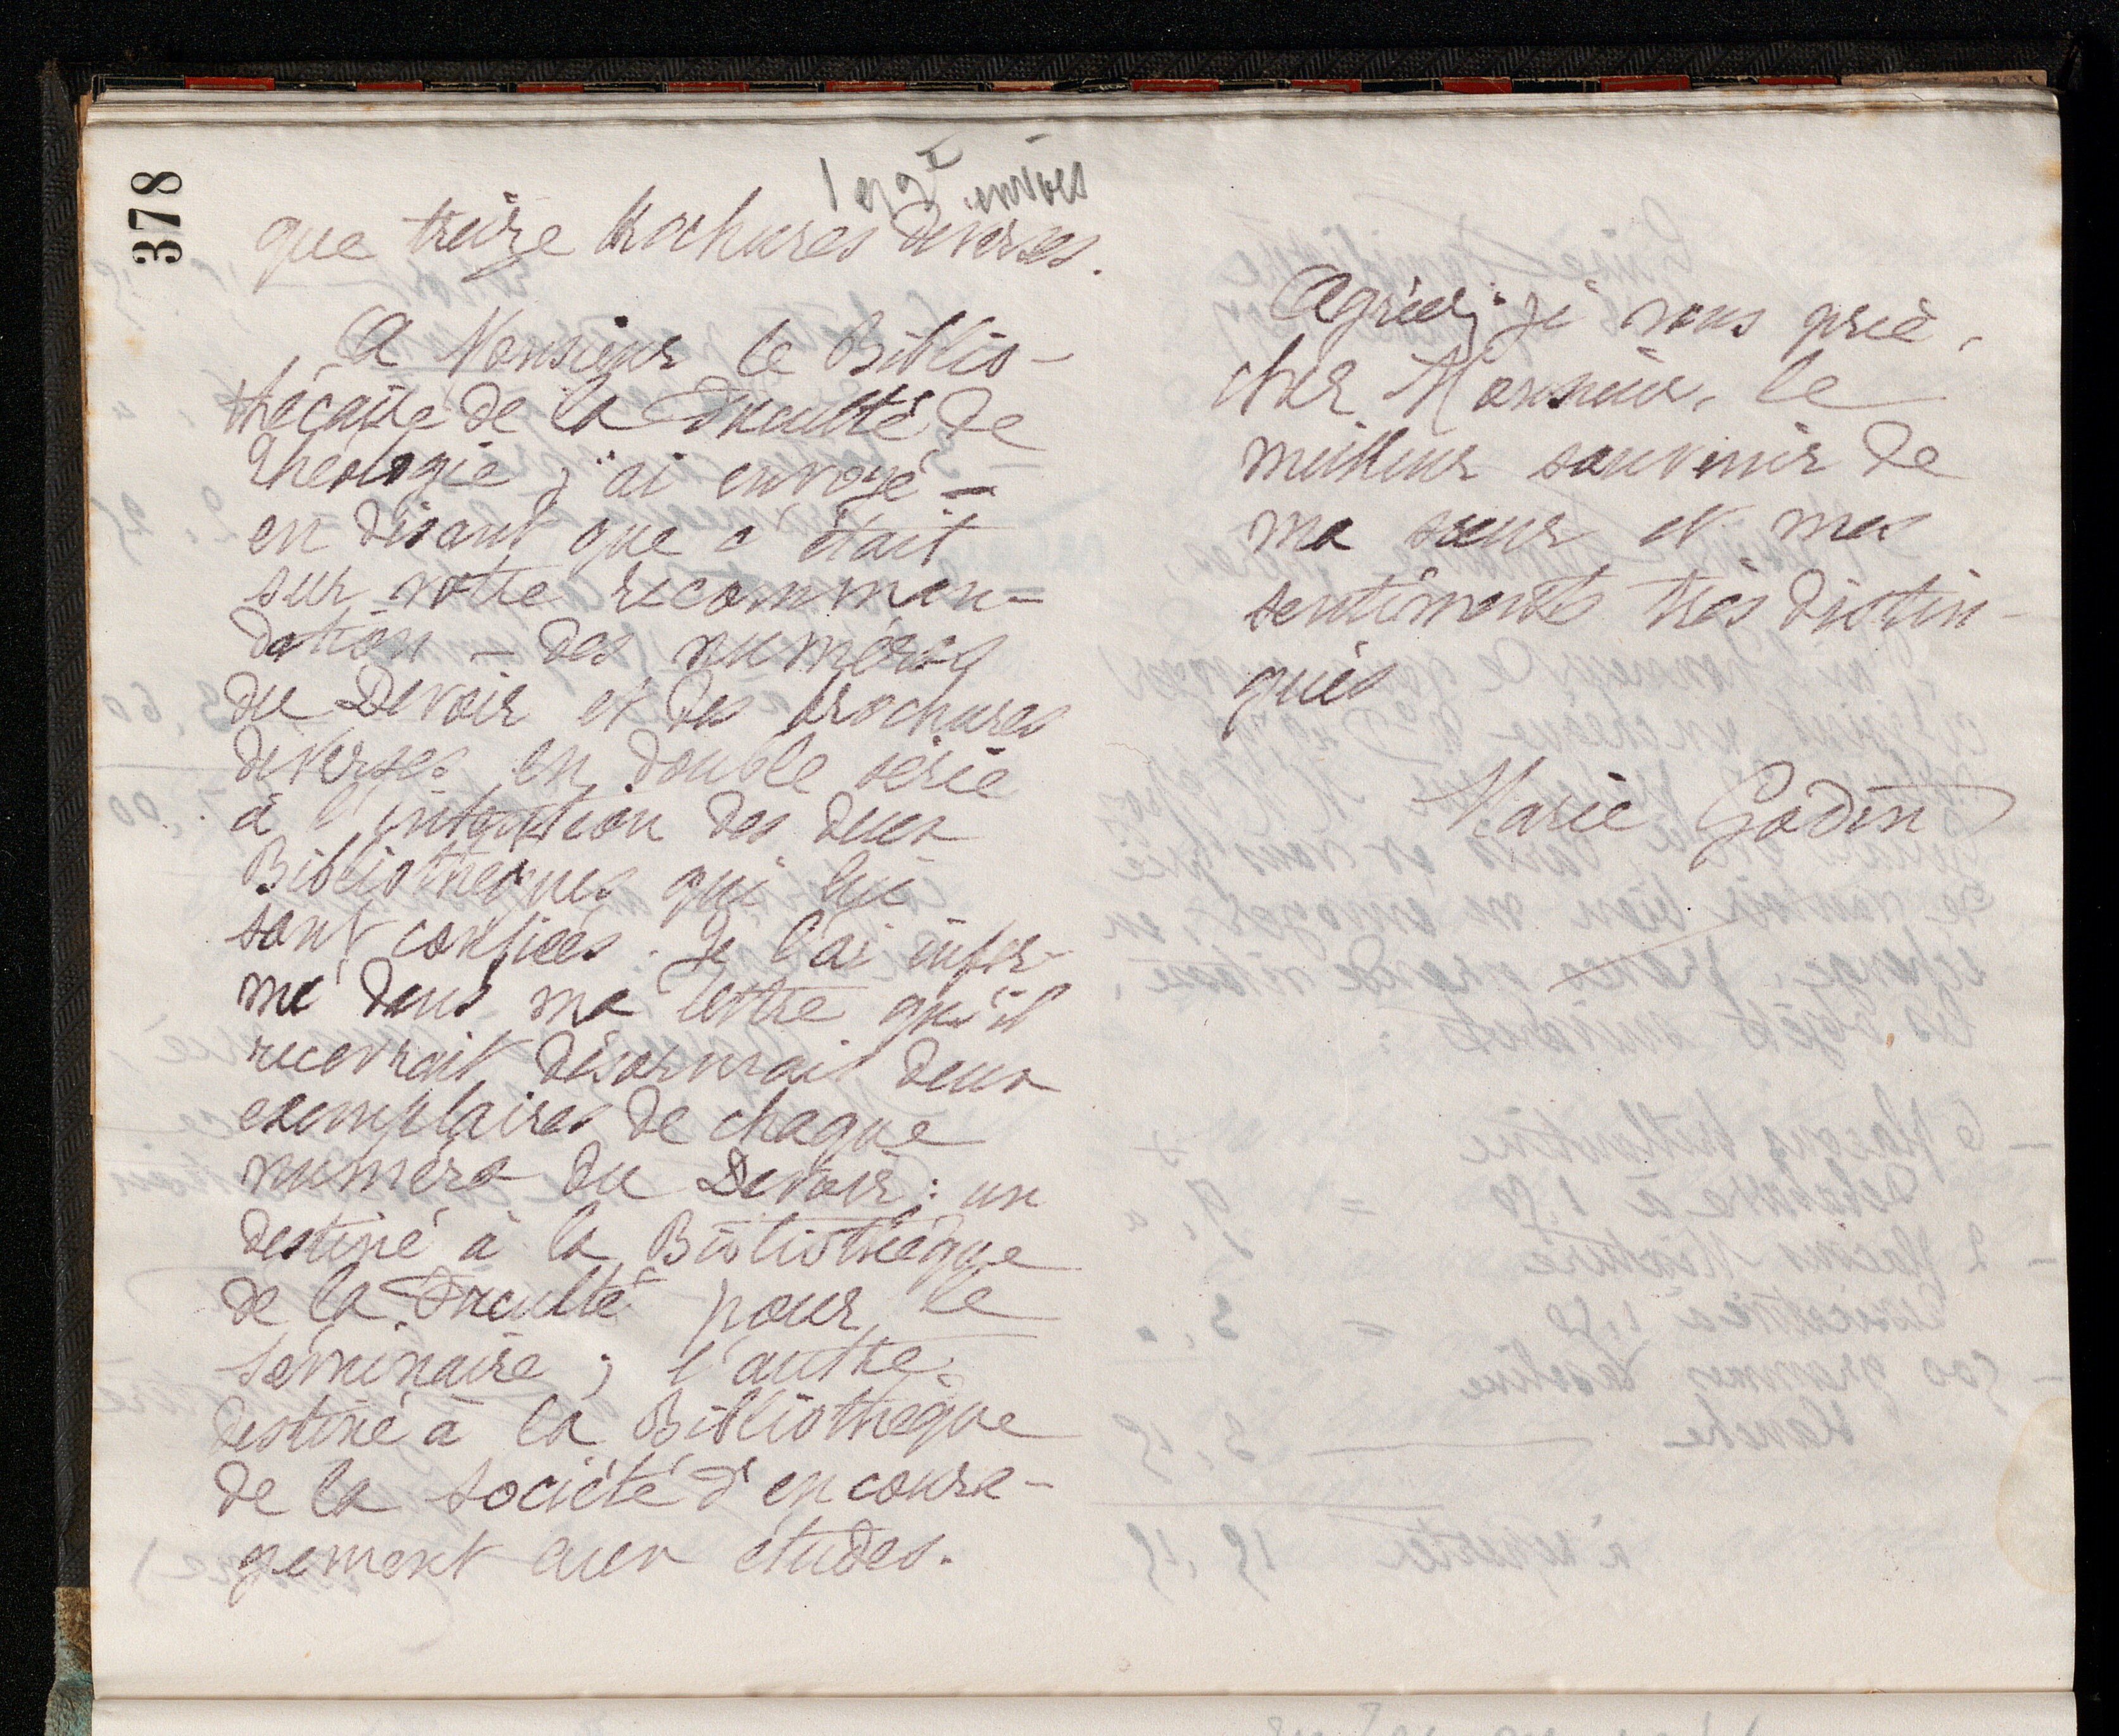 378
envoies
que treize brochures diverses.
A Monsieur le Biblio-
thécaire de la Faculté de
Théologie j'ai envoyé —
en disant que c'était
sur votre recomman-
dation — des numéros
du Devoir et des brochures
diverses en double série
à l'intention des deux
Bibliothèques qui lui
sont confiées. Je l'ai infor-
mé dans ma lettre qu'il
recevrait désormais deux
exemplaires de chaque
numéro du Devoir : un
destiné à la Bibliothèque
de la Faculté pour le
Séminaire ; l'autre
destiné à la Bibliothèque
de la société d'encoura-
gement aux études.
Agréez, je vous prie,
cher Monsieur, le
meilleur souvenir de
ma sœur et mes
sentiments très distin-
gués
Marie Godin